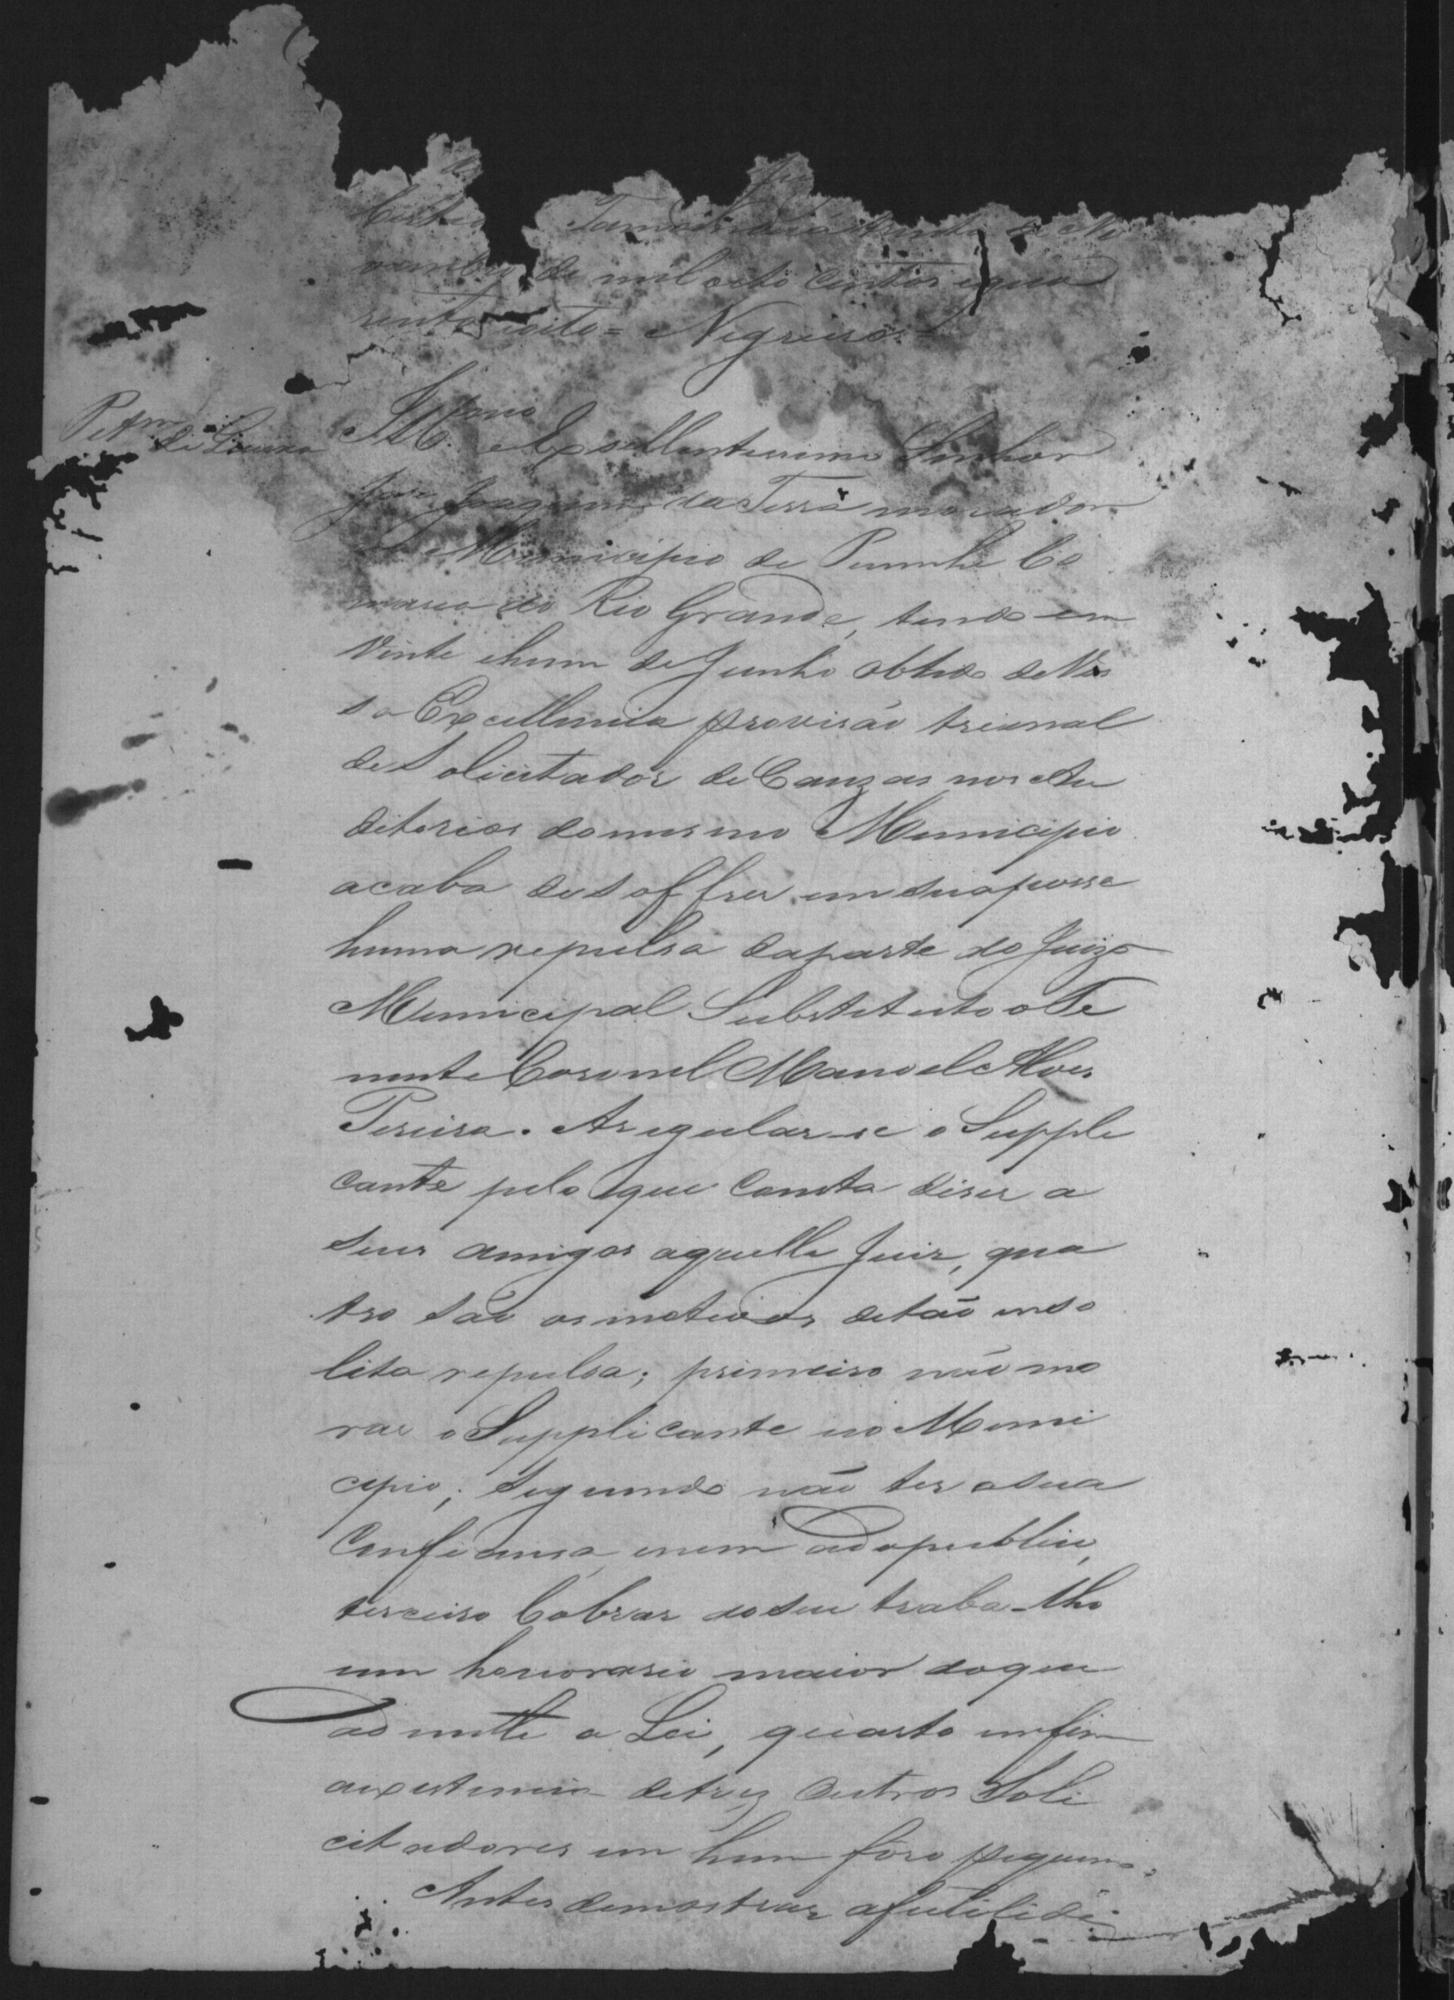 Tamandua trinta de No
vembro de mil oito centos e qua
renta e oito = Negreiros.
Petam
Ill.mo e Excellentissimo Senhor
José Joaquim da Terra morador
Municipio de Piumhi Co
marca do Rio Grande, tendo em
Vinte e hum de Junho obtido de Vos
sa Excellencia provisão trienal
de Solicitador de Cauzas nos Au
ditorios do mesmo Municipio
acaba de soffrer em sua posse
huma repulsa da parte do Juizo
Municipal Substituto o Te
nente Coronel Manoel Alves
Pereira. A regular-se o Suppli
cante pelo que consta diser a
seus amigos aquelle Juiz, qua
tro são os motivos de tão inso
lita repulsa; primeiro não mo
rar o Supplicante no Muni
cipio; segundo não ter a sua
Confiança, e nem a do publico,
terceiro Cobrar do seu traba-lho
um honorario maior do que
admitte a Lei, quarto em fim
a existencia de trez outros Soli
citadores em hum foro pequeno.
Antes demostrar a futilida